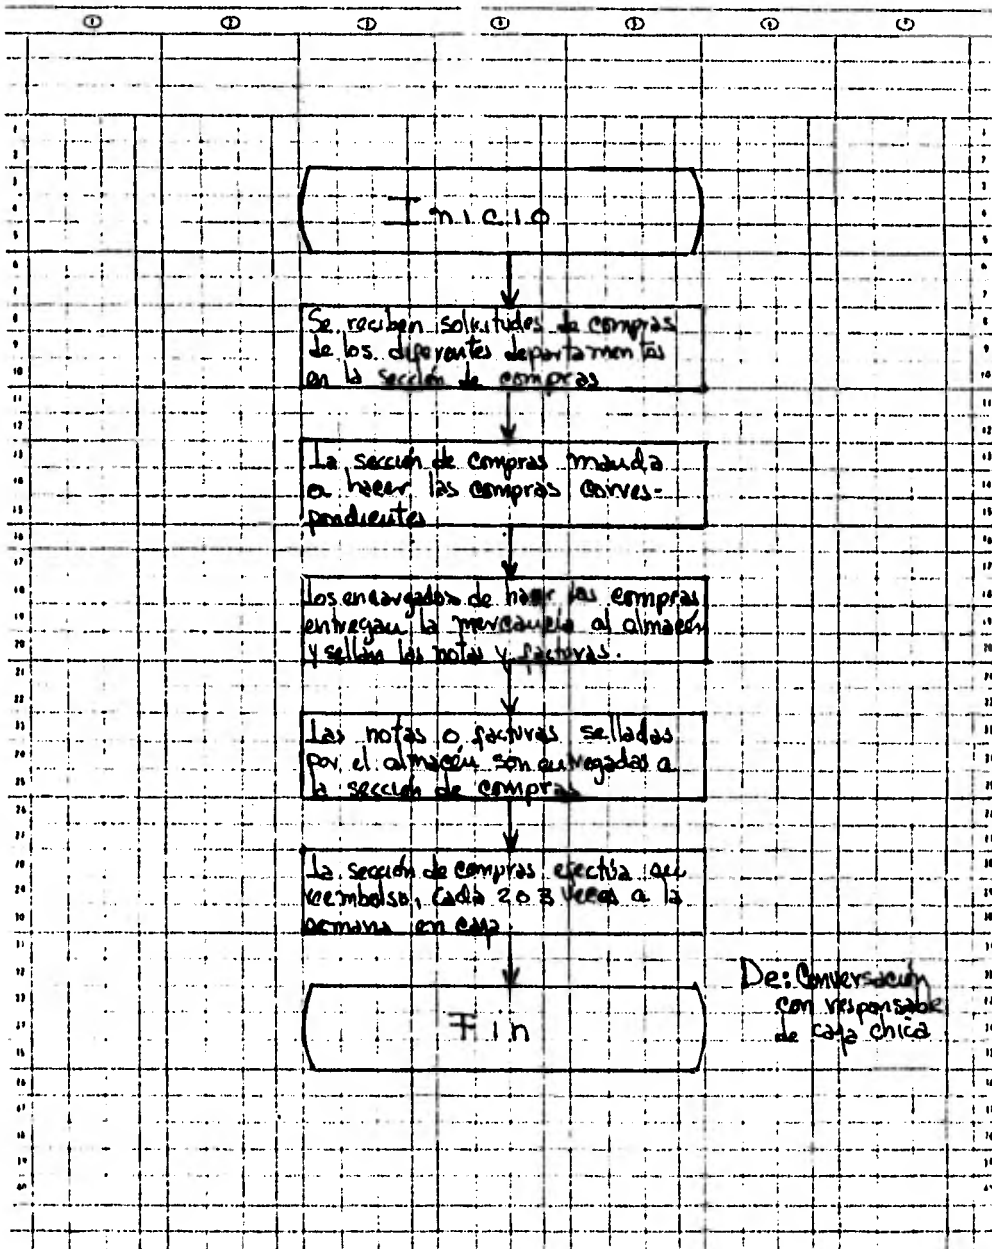 Inicio
Se reciben solicitudes de compras
de los diferentes departamentos
en la sección de compras
La sección de compras manda
a hacer las compras corres-
pondientes
Los encargados de hacer las compras
entregan la mercancía al almacén
y sellan las notas y facturas.
Las notas o facturas selladas
por el almacén son entregadas a
la sección de compras
La sección de compras efectúa su
reembolso, cada 2 o 3 veces a la
semana en caja
Fin
De: Conversación
con responsable
de caja chica